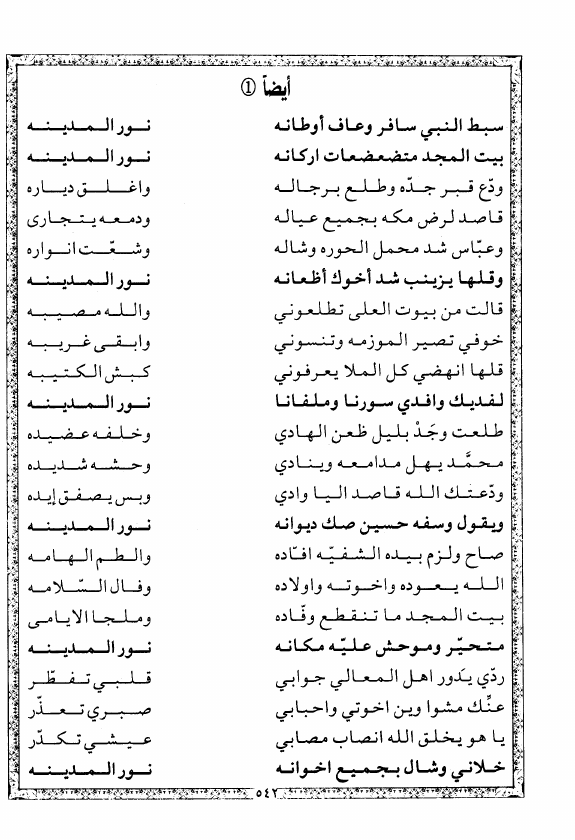 أيضاً ①
سبط النبي سافر وعاف أوطانه نور المدينه
بيت المجد متضعضعات اركانه نور المدينه
ودّع قبر جدّه وطلع برجاله واغلق دياره
قاصد لرض مكه بجميع عياله ودمعه يتجارى
وعبّاس شد محمل الحوره وشاله وشعّت انواره
وقلها يزينب شد أخوك أظعانه نور المدينه
قالت من بيوت العلى تطلعوني والله مصيبه
خوفي تصير الموزمه وتنسوني وابقى غريبه
قلها انهضي كل الملا يعرفوني كبش الكتيبه
لفديك وافدي سورنا وملفانا نور المدينه
طلعت وجَدْ بليل ظعن الهادي وخلفه عضيده
محمَّد يهل مدامعه وينادي وحشه شديده
ودّعتك الله قاصد اليا وادي وبس يصفق إيده
ويقول وسفه حسين صك ديوانه نور المدينه
صاح ولزم بيده الشفيّه افّاده والطم الهامه
الله يعوده واخوته واولاده وفال السّلامه
بيت المجد ما تنقطع وفّاده وملجا الايامى
متحيّر وموحش عليّه مكانه نور المدينه
ردّي يَدور اهل المعالي جوابي قلبي تفطّر
عنِّك مشوا وين اخوتي واحبابي صبري تعذّر
يا هو يخلق الله انصاب مصابي عيشي تكدّر
خلاني وشال بجميع اخوانه نور المدينه
٥٤٢